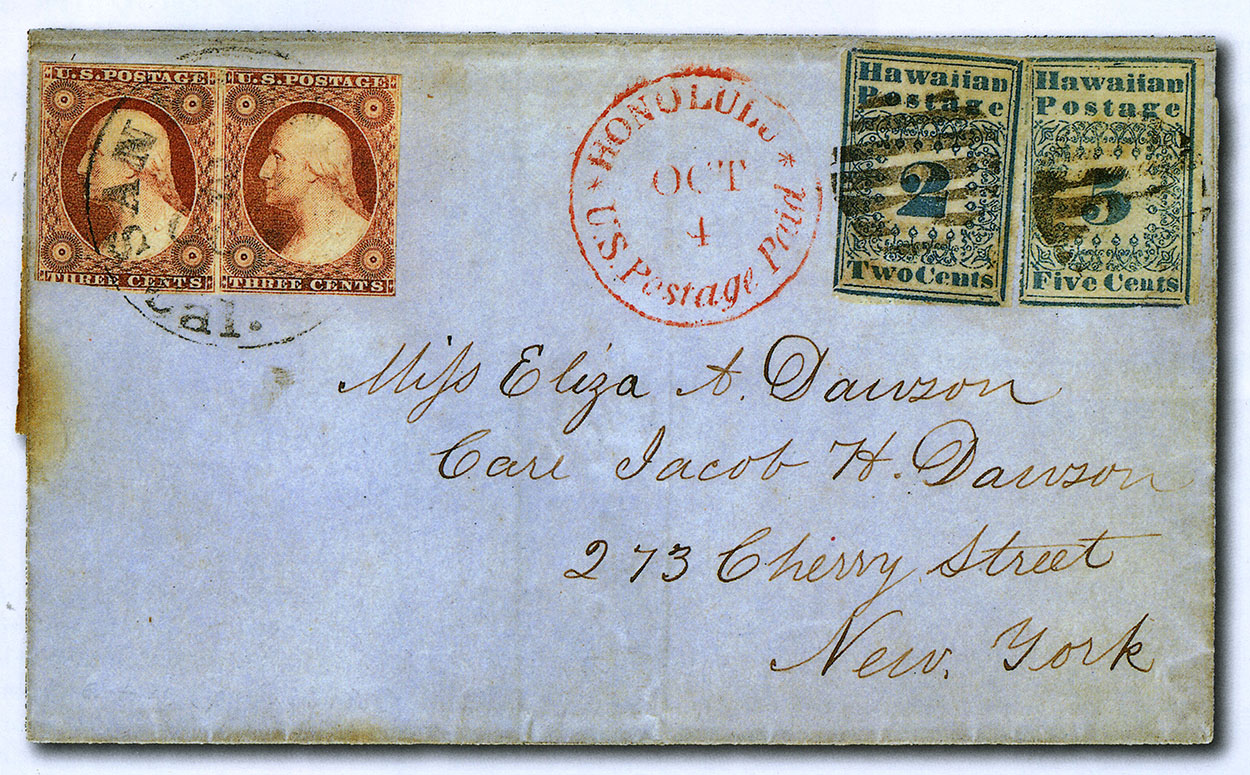 U.S. POSTAGE
THREE CENTS
U.S. POSTAGE
THREE CENTS
SAN
Cal.
* HONOLULU *
OCT
4
U.S. Postage Paid
Hawaiian
Postage
2
Two Cents
Hawaiian
Postage
5
Five Cents
Miss Eliza A. Dawson
Care Jacob H. Dawson
273 Cherry Street
New. York